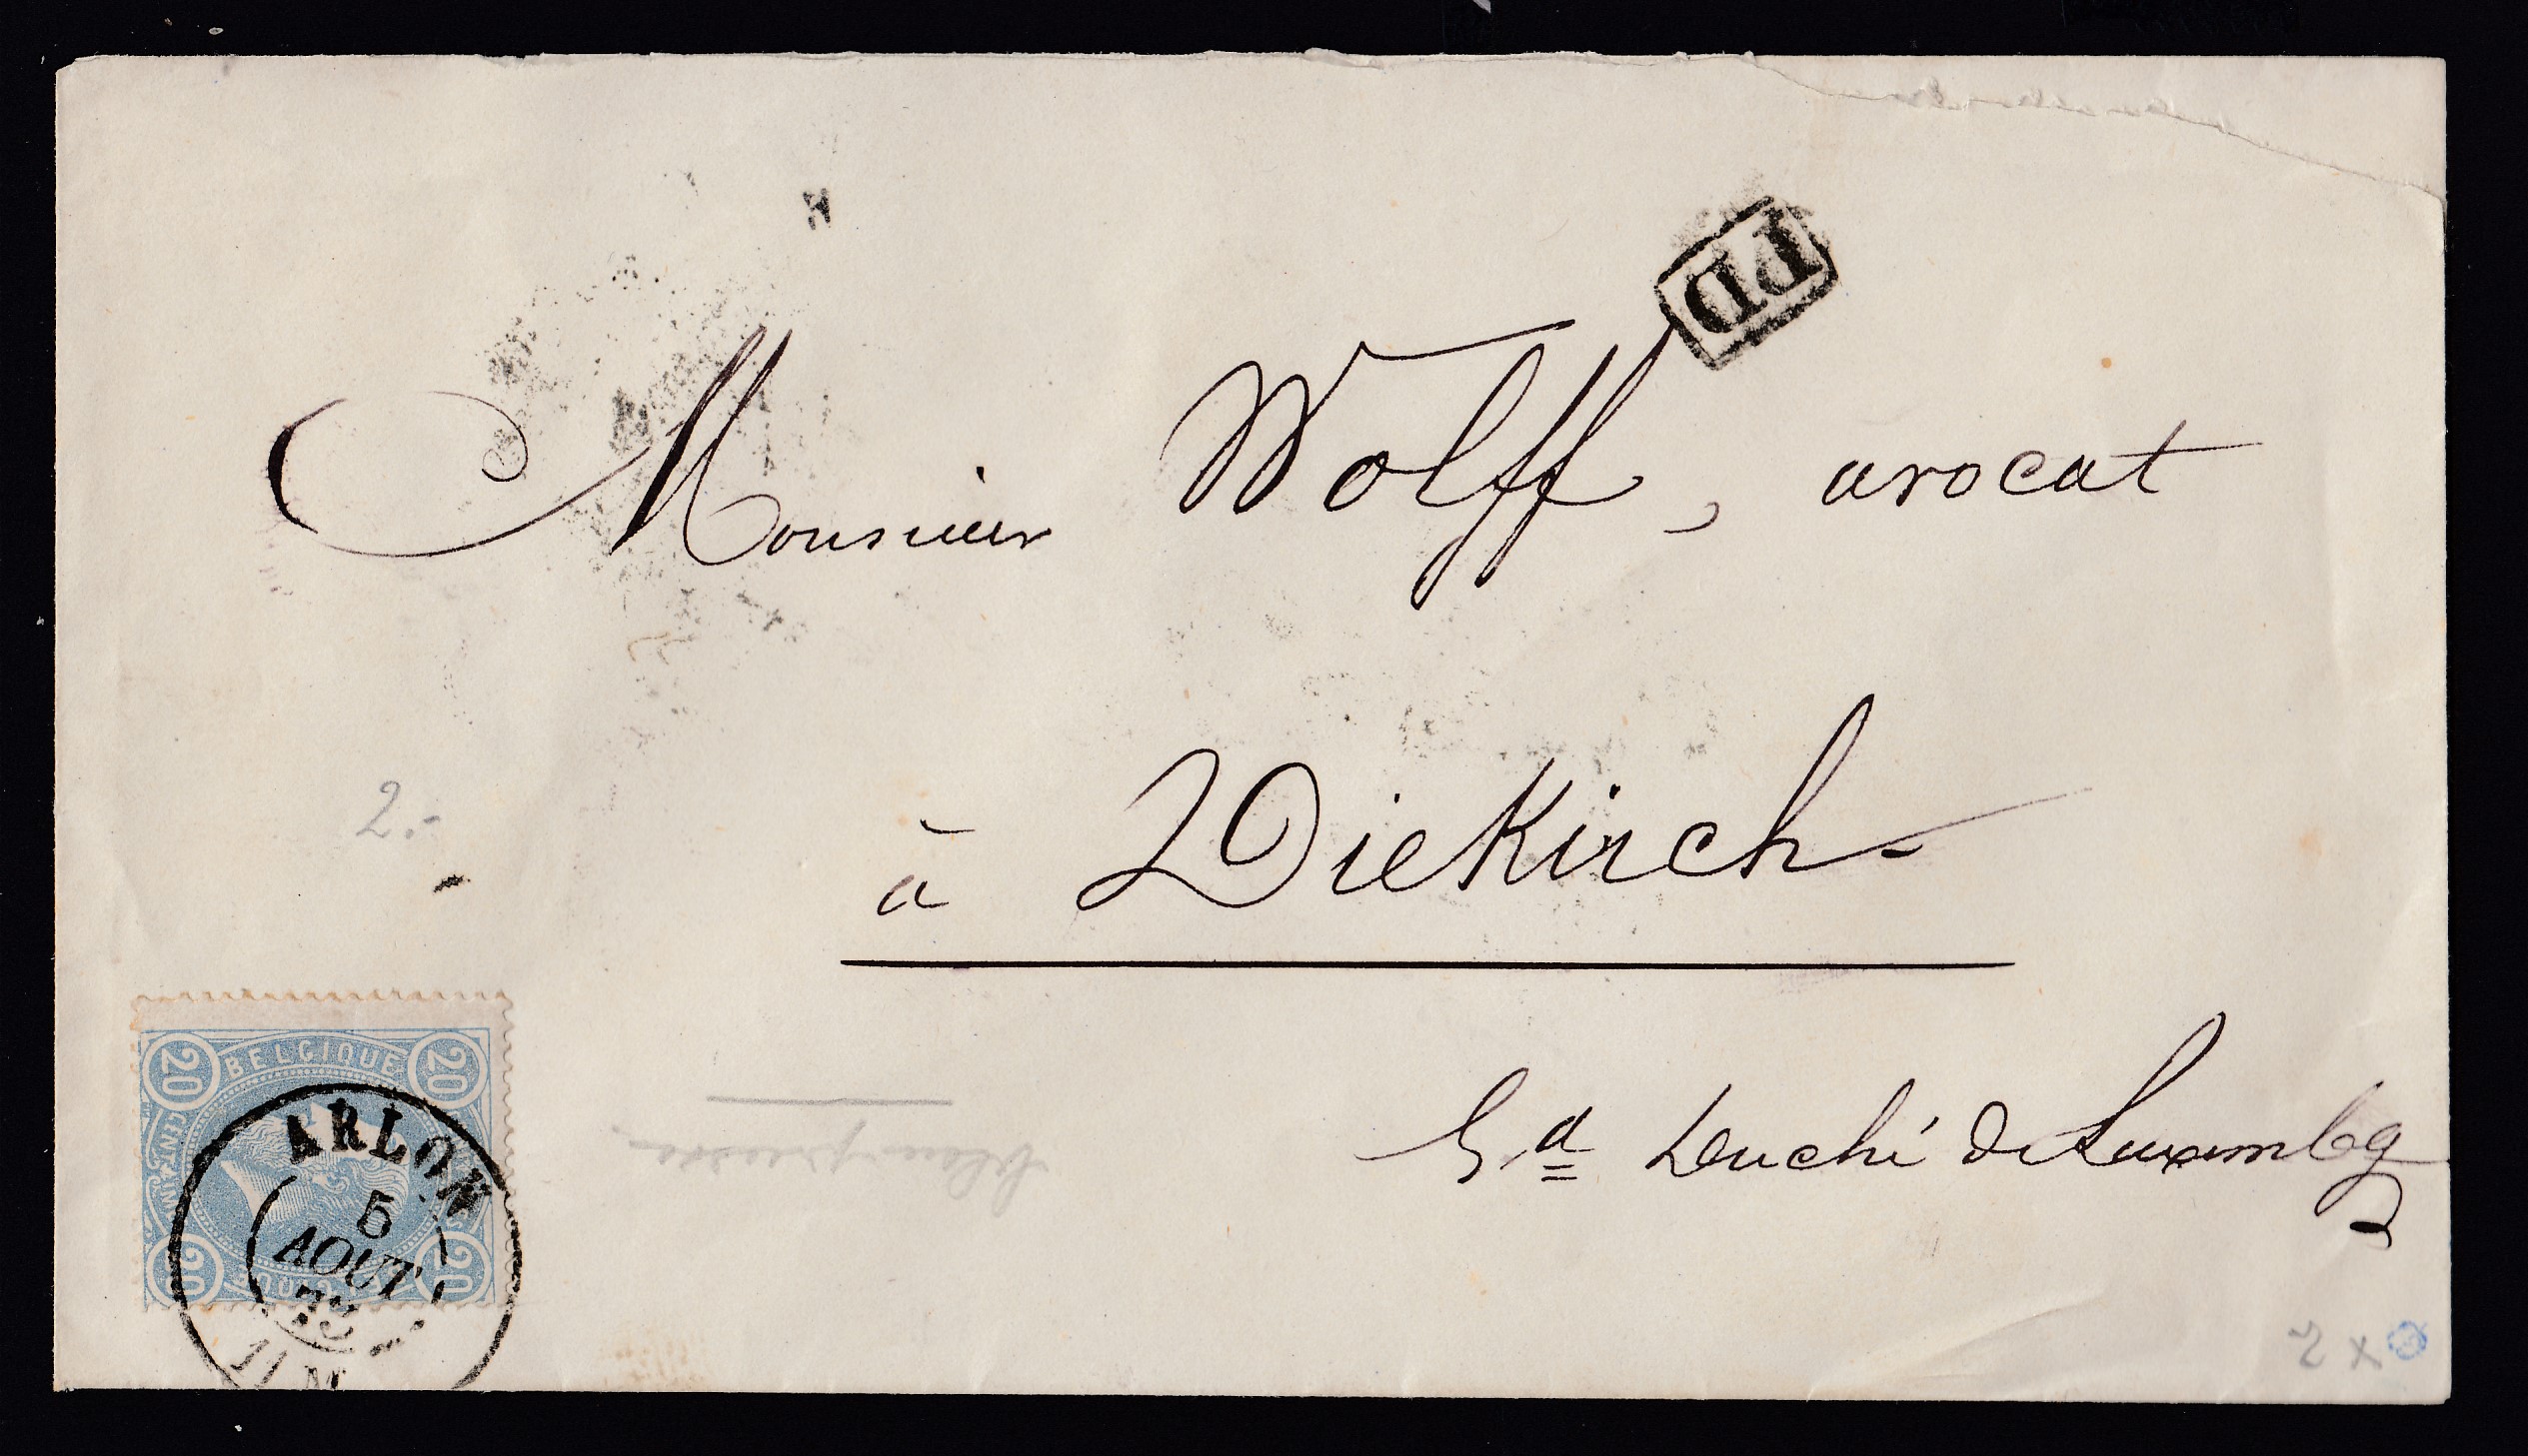 PD
Monsieur Wolff, avocat
à Diekirch
Gd Duché de Luxembg
2.-
BELGIQUE
20 20
20 20
ARLON
5
AOUT
11 M
2 x